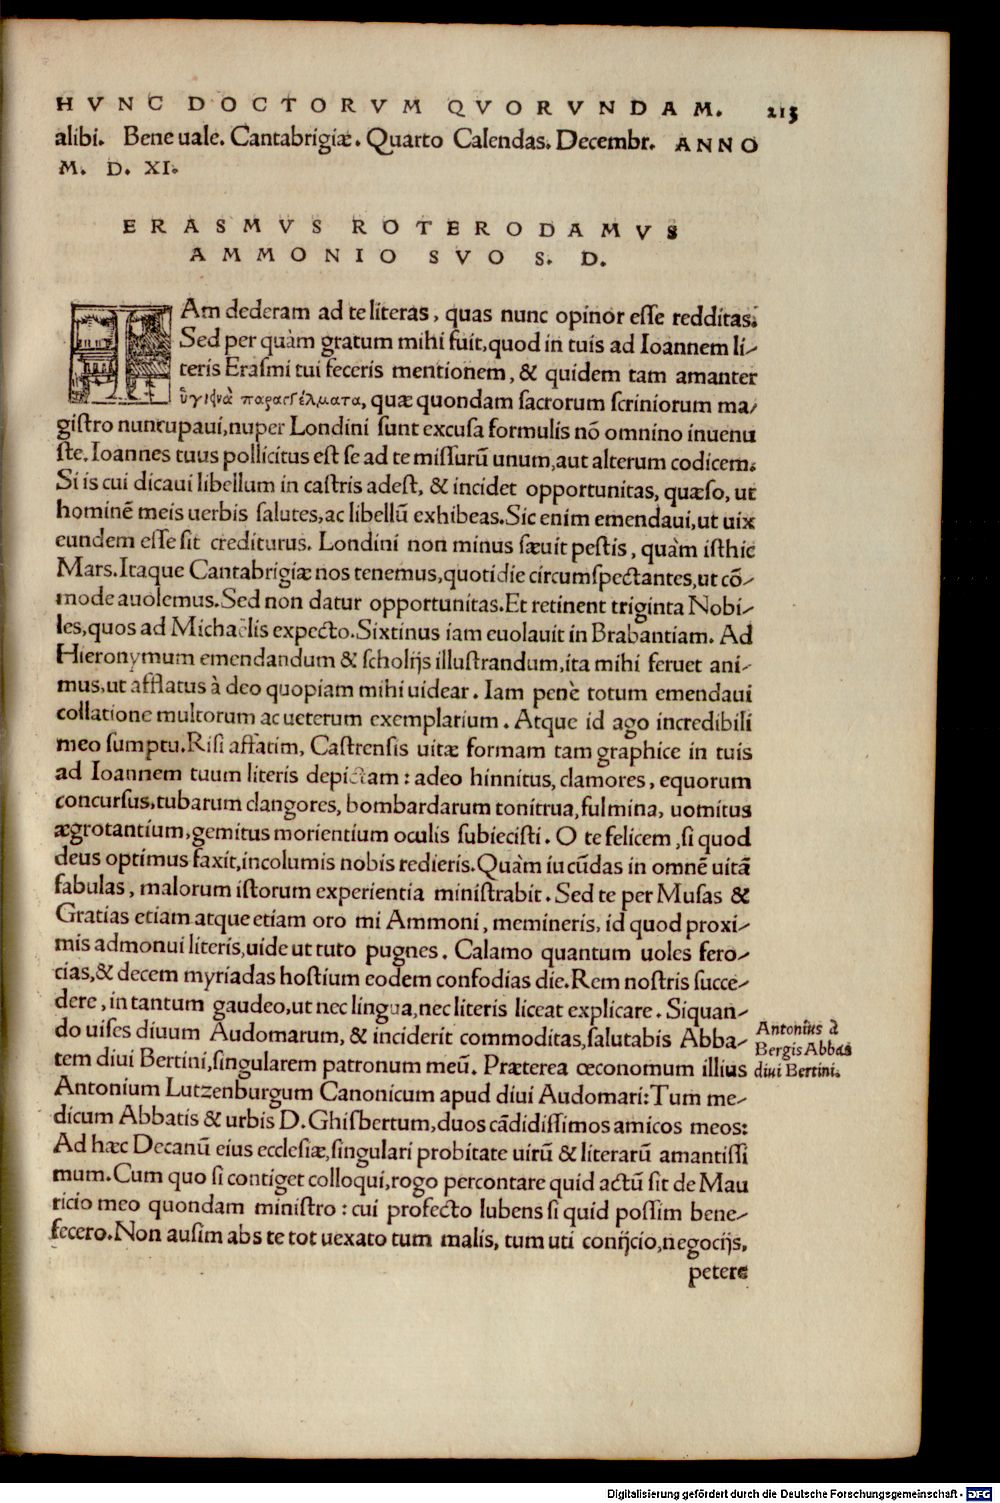 HVNC DOCTORVM QVORVNDAM. 213
alibi. Bene uale. Cantabrigiæ. Quarto Calendas. Decembr. ANNO
M. D. XI.
ERASMVS ROTERODAMVS
AMMONIO SVO S. D.
IAm dederam ad te literas, quas nunc opinor esse redditas.
Sed per quàm gratum mihi fuit, quod in tuis ad Ioannem li-
teris Erasmi tui feceris mentionem, & quidem tam amanter
παραγγέλματα, quæ quondam sacrorum scriniorum ma-
gistro nuncupaui, nuper Londini sunt excusa formulis nō omnino inuenu
ste. Ioannes tuus pollicitus est se ad te missurū unum, aut alterum codicem.
Si is cui dicaui libellum in castris adest, & incidet opportunitas, quæso, ut
hominē meis uerbis salutes, ac libellū exhibeas. Sic enim emendaui, ut uix
eundem esse sit crediturus. Londini non minus sæuit pestis, quàm isthic
Mars. Itaque Cantabrigiæ nos tenemus, quotidie circumspectantes, ut cō-
mode auolemus. Sed non datur opportunitas. Et retinent triginta Nobi-
les, quos ad Michaëlis expecto. Sixtinus iam euolauit in Brabantiam. Ad
Hieronymum emendandum & scholijs illustrandum, ita mihi feruet ani-
mus, ut afflatus à deo quopiam mihi uidear. Iam penè totum emendaui
collatione multorum ac ueterum exemplarium. Atque id ago incredibili
meo sumptu. Risi affatim, Castrensis uitæ formam tam graphice in tuis
ad Ioannem tuum literis depictam: adeo hinnitus, clamores, equorum
concursus, tubarum clangores, bombardarum tonitrua, fulmina, uomitus
ægrotantium, gemitus morientium oculis subiecisti. O te felicem, si quod
deus optimus faxit, incolumis nobis redieris. Quàm iucūdas in omnē uitā
fabulas, malorum istorum experientia ministrabit. Sed te per Musas &
Gratias etiam atque etiam oro mi Ammoni, memineris, id quod proxi-
mis admonui literis, uide ut tuto pugnes. Calamo quantum uoles fero-
cias, & decem myriadas hostium eodem confodias die. Rem nostris succe-
dere, in tantum gaudeo, ut nec lingua, nec literis liceat explicare. Siquan-
do uises diuum Audomarum, & inciderit commoditas, salutabis Abba-
tem diui Bertini, singularem patronum meū. Præterea œconomum illius
Antonium Lutzenburgum Canonicum apud diui Audomari: Tum me-
dicum Abbatis & urbis D. Ghisbertum, duos cādidissimos amicos meos:
Ad hæc Decanū eius ecclesiæ, singulari probitate uirū & literarū amantissi
mum. Cum quo si contiget colloqui, rogo percontare quid actū sit de Mau
ricio meo quondam ministro: cui profecto lubens si quid possim bene-
fecero. Non ausim abs te tot uexato tum malis, tum uti conijcio, negocijs,
petere
Antonius à
Bergis Abbas
diui Bertini.
Digitalisierung gefördert durch die Deutsche Forschungsgemeinschaft - DFG